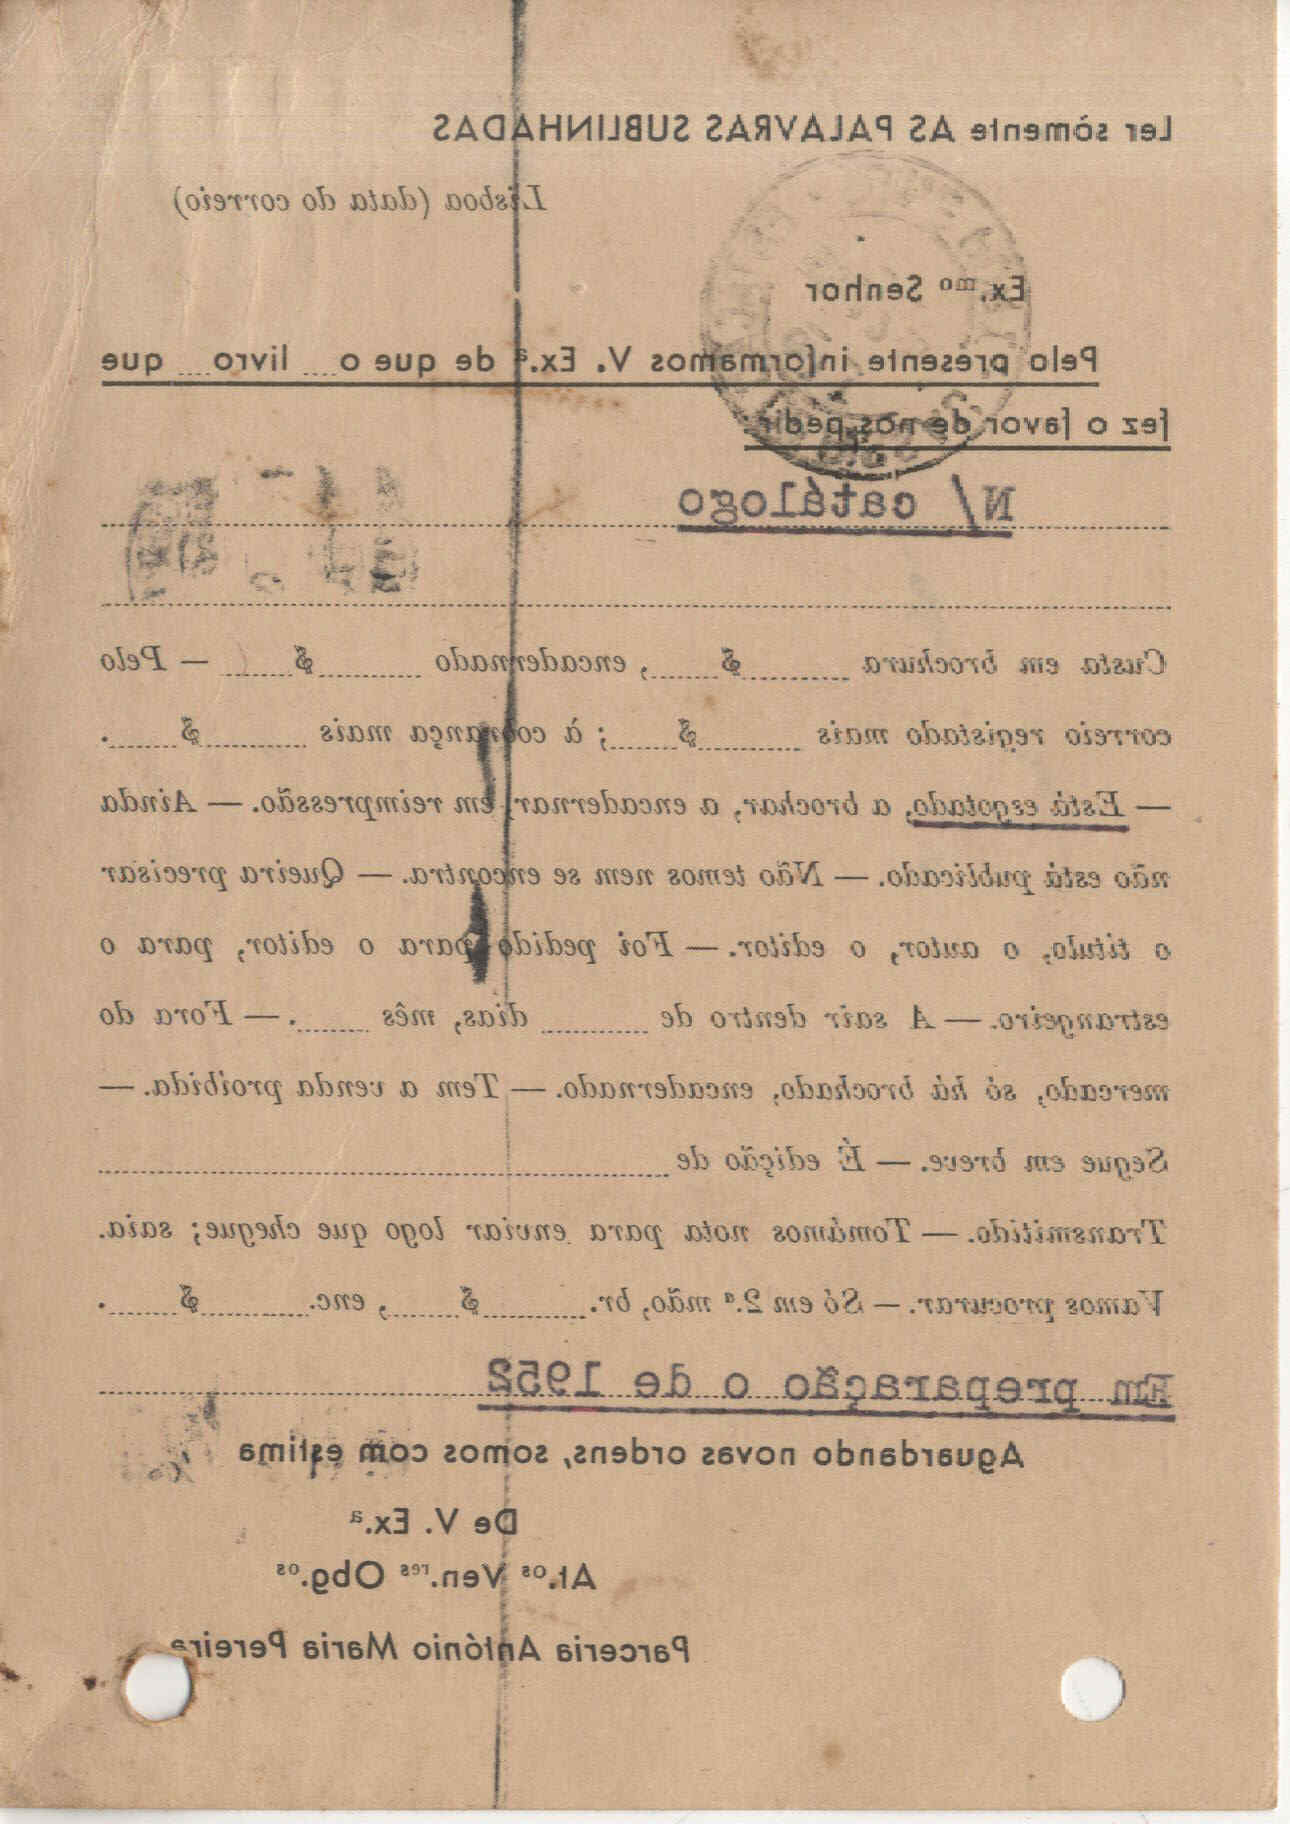 Ler sòmente AS PALAVRAS SUBLINHADAS
Lisboa (data do correio)
Ex.mo Senhor
Pelo presente informamos V. Ex.ª de que o.... livro.... que
fez o favor de nos pedir:
N/ catálogo
Custa em brochura ........$......, encadernado ........$...... — Pelo
correio registado mais ........$......; à cobrança mais ........$.......
— Está esgotado, a brochar, a encadernar, em reimpressão. — Ainda
não está publicado. — Não temos nem se encontra. — Queira precisar
o titulo, o autor, o editor. — Foi pedido para o editor, para o
estrangeiro. — A sair dentro de ........ dias, mês ....... — Fora do
mercado, só há brochado, encadernado. — Tem a venda proibida. —
Segue em breve. — É edição de
Transmitido. — Tomámos nota para enviar logo que chegue; saia.
Vamos procurar. — Só em 2.ª mão, br. ........$......, enc. ........$.......
Em preparação o de 1952
Aguardando novas ordens, somos com estima
De V. Ex.ª
At.os Ven.res Obg.os
Parceria António Maria Pereira